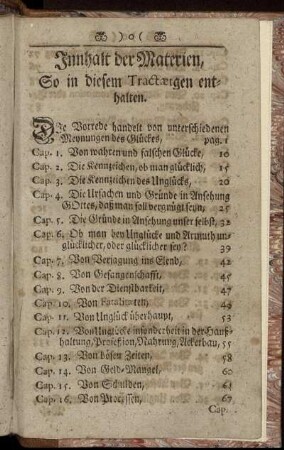 )o(
Innhalt der Materien,
So in diesem Tractætgen ent-
halten.
DIe Vorrede handelt von unterschiedenen
Meynungen des Glückes, pag. 1
Cap. 1. Von wahren und falschen Glücke, 10
Cap. 2. Die Kennzeichen, ob man glücklich, 15
Cap. 3. Die Kennzeichen des Unglücks, 20
Cap. 4. Die Ursachen und Gründe in Ansehung
GOttes, daß man soll vergnügt seyn, 25
Cap. 5. Die Gründe in Ansehung unser selbst, 32
Cap. 6. Ob man bey Unglücke und Armuth un-
glücklicher, oder glücklicher sey? 39
Cap. 7. Von Verjagung ins Elend, 42
Cap. 8. Von Gefangenschafft, 45
Cap. 9. Von der Dienstbarkeit, 47
Cap. 10. Von 49
Cap. 11. Von Unglück überhaupt, 53
Cap. 12. Von Unglücke insonderheit in der Hauß-
haltung, Profession, Nahrung, Ackerbau, 55
Cap. 13. Von bösen Zeiten, 58
Cap. 14. Von Geld-Mangel, 60
Cap. 15. Von Schulden, 63
Cap. 16. Von Processen, 67
Cap.